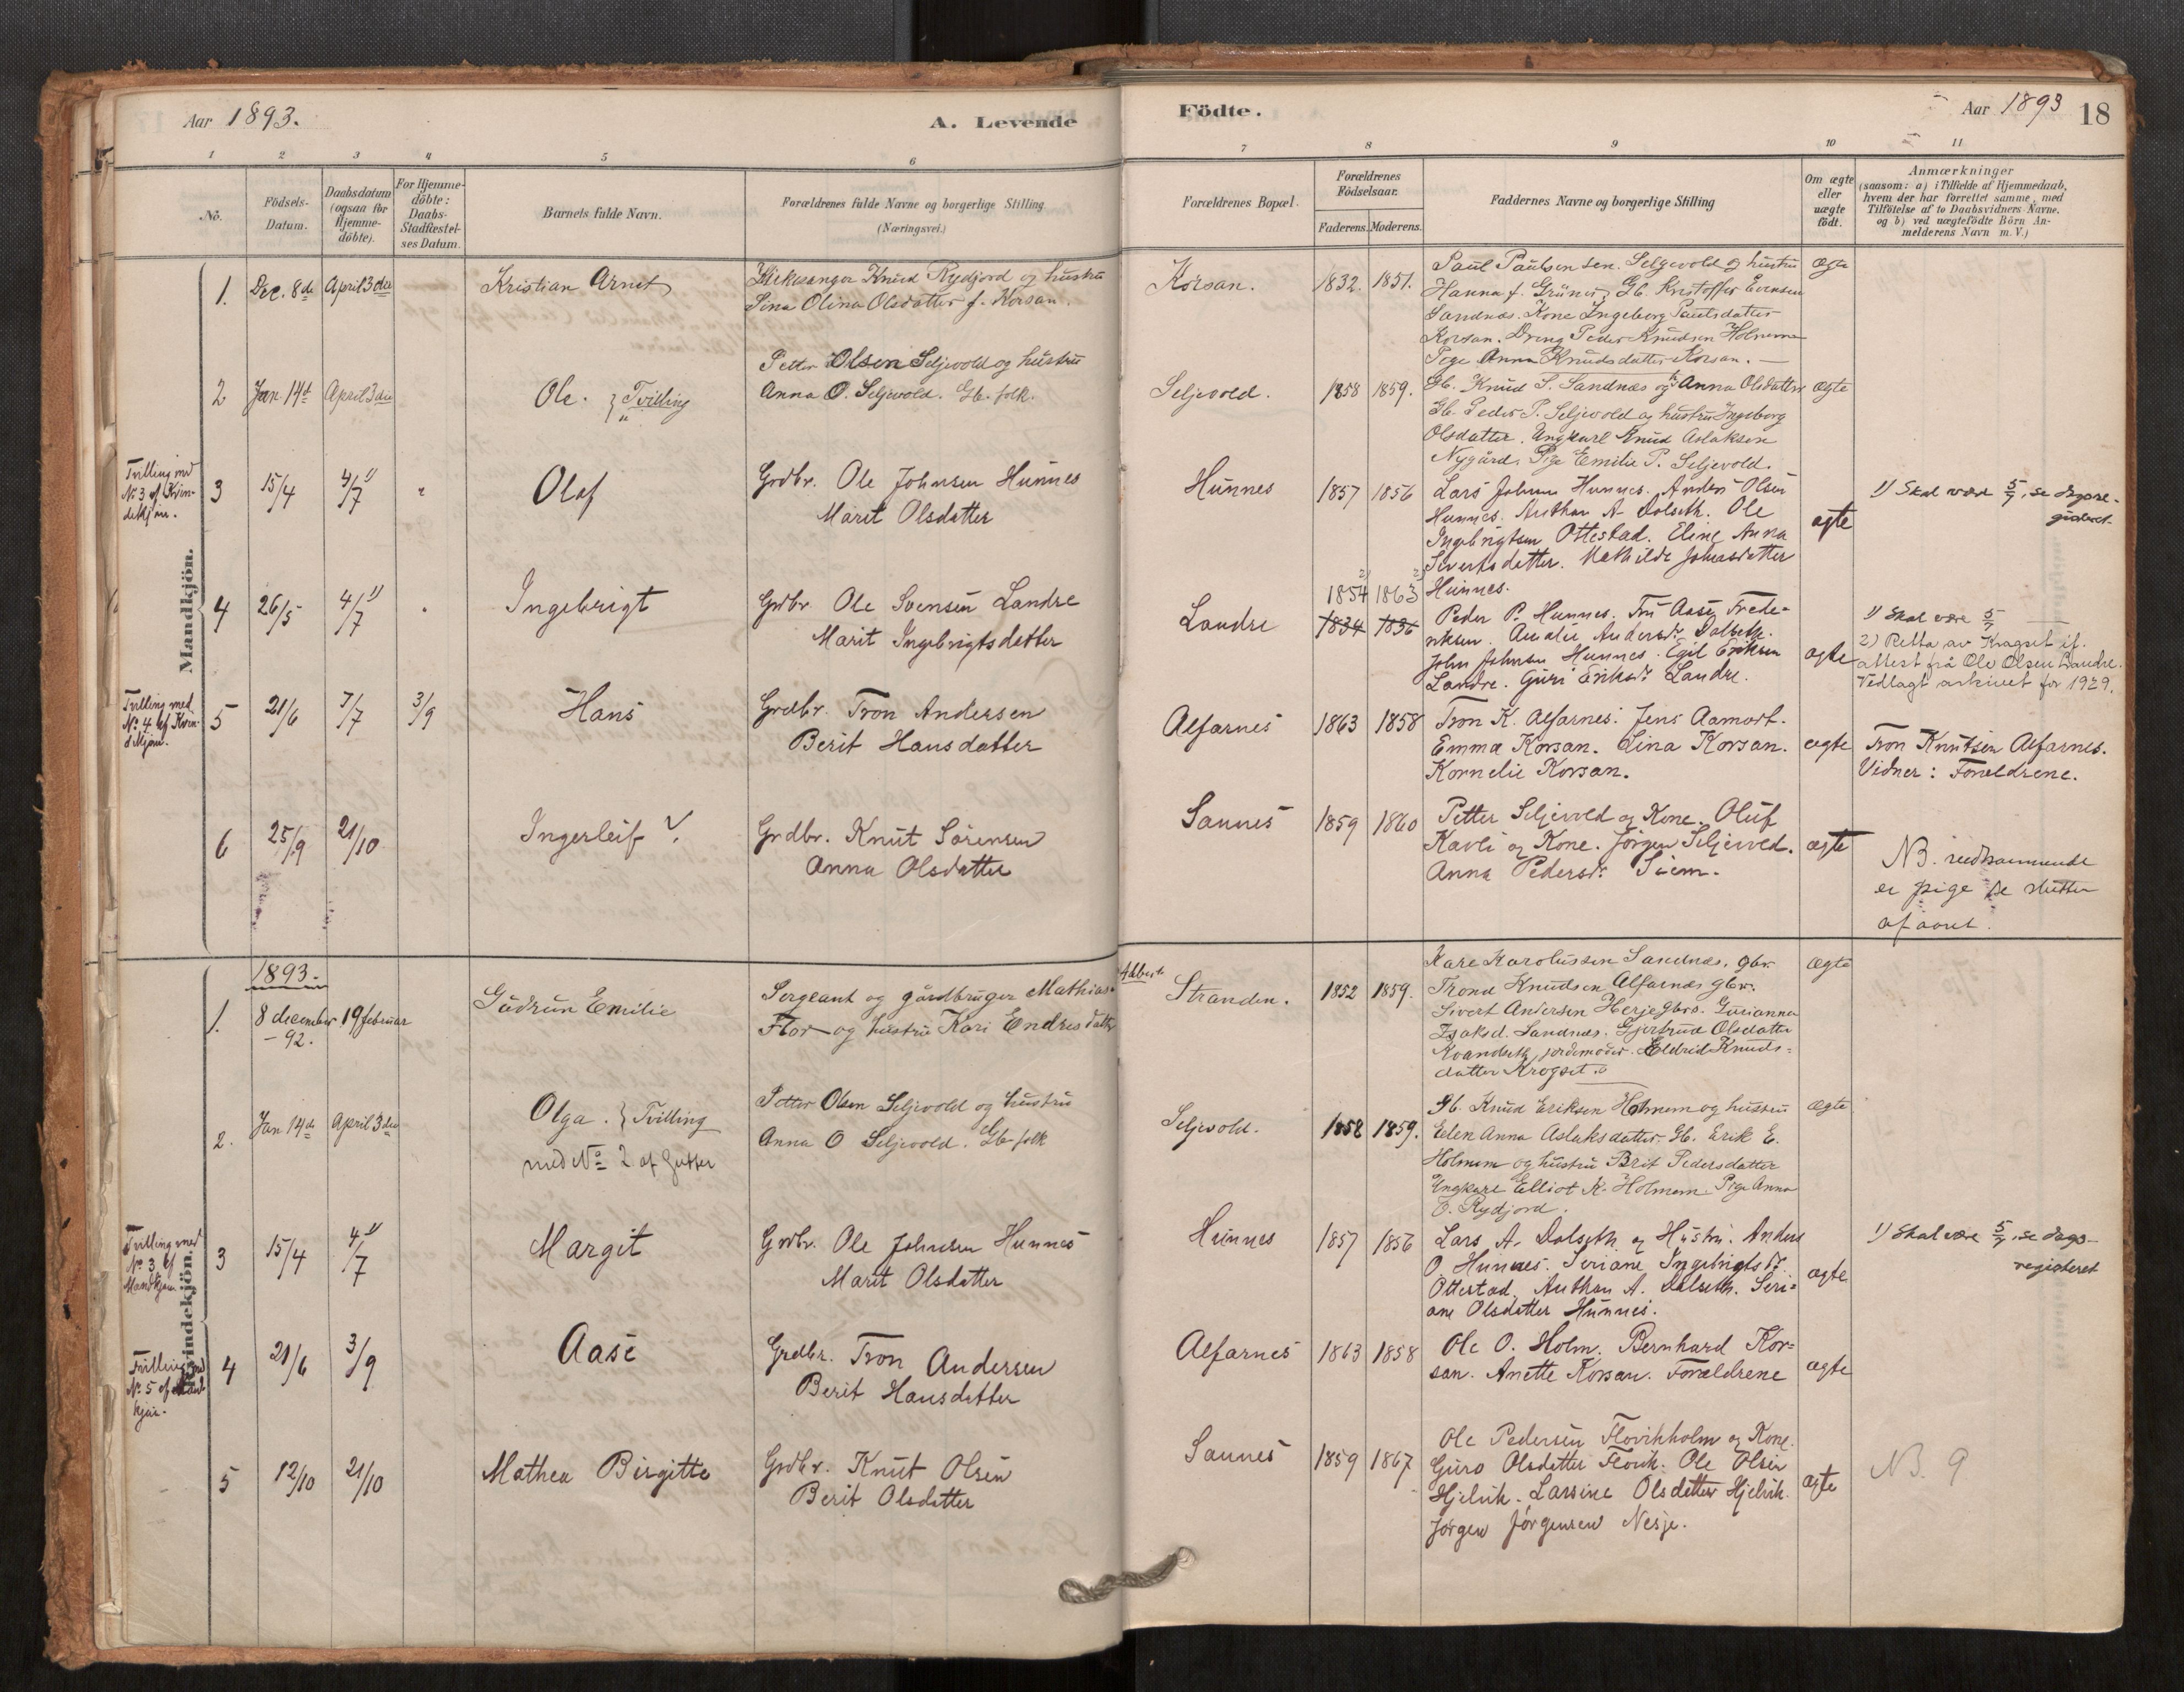 Aar 1893.
A. Levende
Födte.
Aar 1893
18
1 2 3 4 5 6 7 8 9 10 11
No.
Födsels-
Datum.
Daabsdatum
(ogsaa for
Hjemme-
döbte).
For Hjemme-
döbte:
Daabs-
Stadfæstel-
ses Datum.
Barnets fulde Navn.
Forældrenes fulde Navne og borgerlige Stilling
(Næringsvei.)
Forældrenes Bopæl.
Forældrenes
Födselsaar.
Faderens. Moderens.
Faddernes Navne og borgerlige Stilling
Om ægte
eller
uægte
födt.
Anmærkninger
(saasom: a) i Tilfælde af Hjemmedaab,
hvem der har forrettet samme, med
Tilföielse af to Daabsvidners Navne,
og b) ved uægtefödte Börn An-
melderens Navn m.V.)
Mandkjön.
1. Dec. 8de April 3die Kristian Arnet
Kirkesanger Knud Rydjord og hustru
Sina Olina Olsdatter f. Korsan.
Korsan. 1832. 1851.
Paul Paulsen sen. Selgevold og hustru
Hanna f. Grüner, Gb. Kristoffer Evensen
Sandnæs. Kone Ingeborg Paulsdatter
Korsan. Dreng Peder Knudsen Holmem
Pige Anna Knudsdatter Korsan.
Ægte
2 Jan. 14de April 3die Ole. } Tvilling
Petter Olsen Seljevold og hustru
Anna O. Seljevold. Gb. folk.
Seljevold. 1858 1859.
Gb. Knud S. Sandnæs og h. Anna Olsdatter
Gb. Peder P. Seljevold og hustru Ingeborg
Olsdatter. Ungkarl Knud Aslaksen
Nygård. Pige Emilie P. Seljevold.
Ægte
Tvilling med
No 3 af Kvin-
dekjøn.
3 15/4 4/7 1) " Olaf
Grdbr. Ole Johnsen Hunnes
Marit Olsdatter
Hunnes 1857 1856
Lars Johnsen Hunnes. Anders Olsen
Hunnes. Anthon A. Dalseth. Ole
Ingebrigtsen Ottestad. Eline Anna
Sivertsdatter. Mathilde Johnsdatter
Hunnes.
ægte
1) Skal være 5/7, se dagsre-
gisteret.
4 26/5 4/7 1) " Ingebrigt
Grdbr. Ole Svensen Landre
Marit Ingebrigtsdatter
Landre 2) 1854 2) 1863
1834 1836
Peder P. Hunnes. Fru Aase Frede-
riksen. Amalie Andersdr Dalseth.
John Johnsen Hunnes. Egil Eriksen
Landre. Guri Eriksdr Landre.
ægte
1) Skal være 5/7
2) Retta av Kragset if.
attest frå Ole Olsen Landre.
Vedlagt arkivet for 1929.
Tvilling med
No 4 af Kvin-
dekjøn.
5 21/6 7/7 3/9 Hans
Grdbr. Tron Andersen
Berit Hansdatter
Alfarnes 1863 1858
Tron K. Alfarnes. Jens Aamort.
Emma Korsan. Lina Korsan.
Kornelie Korsan.
ægte
Tron Knutsen Alfarnes.
Vidner: Forældrene.
6 25/9 21/10 Ingerleif V.
Grdbr. Knut Sørensen
Anna Olsdatter
Sannes 1859 1860
Petter Seljevold og Kone. Oluf
Kavli og Kone. Jørgen Seljevold.
Anna Pedersdr Siem.
ægte
NB. vedkommende
er pige se slutten
af aaret.
Kvindekjön.
1893.
1. 8 december 19 februar
- 92.
Gudrun Emilie
Sergeant og gårdbruger Mathias
Flor og hustru Kari Endresdatter
Stranden. 1852 1859.
Kare Karolussen Sandnæs, gbr.
Trond Knudsen Alfarnæs gbr.
Sivert Andersen Herje gbr. Gurianna
Isaksd. Sandnæs. Gjertrud Olsdatter
Kvandseth, jordemoder. Eldrid Knuds-
datter Krogset.
Ægte
2. Jan 14de April 3die Olga. } Tvilling
med No 2 af Gutter
Petter Olsen Seljevold og hustru
Anna O Seljevold. Gb folk
Seljevold. 1858 1859.
Gb. Knud Eriksen Holmem og hustru
Elen Anna Aslaksdatter. Gb. Erik E.
Holmem og hustru Brit Pedersdatter
Ungkarl Elliot K. Holmem. Pige Anna
E. Rydjord.
Ægte
Tvilling med
No 3 af
Mandkjøn.
3 15/4 4/7 1) Margit
Grdbr. Ole Johnsen Hunnes
Marit Olsdatter
Hunnes 1857 1856
Lars A. Dalseth og Hustru. Anders
O. Hunnes. Seriane Ingebrigtsdr
Ottestad. Anthon A. Dalseth. Seri-
ane Olsdatter Hunnes.
ægte
1) Skal være 5/7, se dags-
registeret
Tvilling med
No 5 af Mand-
kjøn.
4 21/6 3/9 Aase
Grdbr. Tron Andersen
Berit Hansdatter
Alfarnes 1863 1858
Ole O. Holm. Bernhard Kor-
san. Anette Korsan. Forældrene
ægte
5 12/10 21/10 Mathea Birgitte
Grdbr. Knut Olsen
Berit Olsdatter
Sannes 1859 1867
Ole Pedersen Flovikholm og Kone.
Guro Olsdatter Flovik. Ole Olsen
Hjelvik. Larsine Olsdatter Hjelvik.
Jørgen Jørgensen Nesje.
ægte
NB. 9